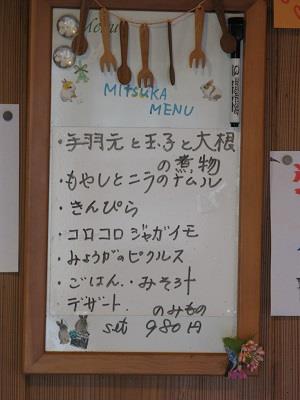 Menu
MITSUKA
MENU
・手羽元と玉子と大根
の煮物
・もやしとニラのナムル
・きんぴら
・コロコロジャガイモ
・みょうがのピクルス
・ごはん・・みそ汁
・デザート. のみもの
set 980円